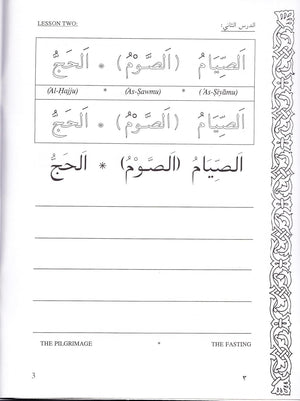 LESSON TWO: الدرس الثاني:
اَلصِّيَامُ (اَلصَّوْمُ) * اَلحَجُّ
(Al-Hajju) * (As-Sawmu) * ('As-Siyāmu)
اَلصِّيَامُ (اَلصَّوْمُ) * اَلحَجُّ
اَلصِّيَامُ (اَلصَّوْمُ) * اَلحَجُّ
THE PILGRIMAGE * THE FASTING
3 ٣